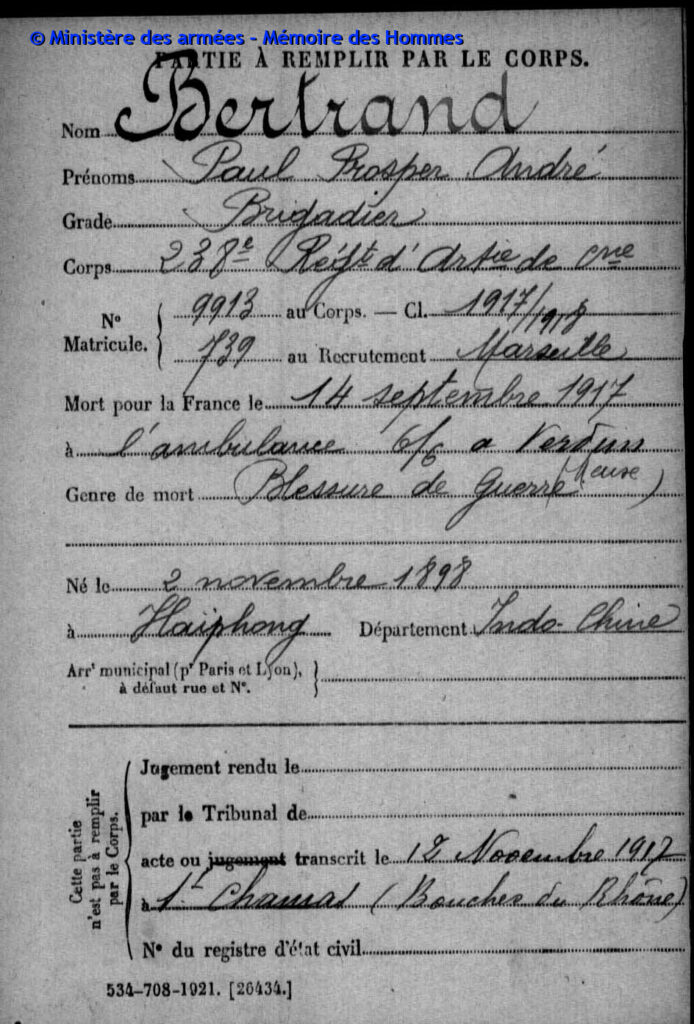 © Ministère des armées - Mémoire des Hommes
PARTIE À REMPLIR PAR LE CORPS.
Nom Bertrand
Prénoms Paul Prosper André
Grade Brigadier
Corps 238e Régt d'Artie de Cne
N° Matricule. { 9913 au Corps. — Cl. 1917/1918
739 au Recrutement Marseille
Mort pour la France le 14 septembre 1917
à l'ambulance 6/6 a Verdun
Genre de mort Blessure de Guerre (Meuse)
Né le 2 novembre 1898
à Haïphong Département Indo-Chine
Arrt municipal (pr Paris et Lyon), }
à défaut rue et N°.
Cette partie n'est pas à remplir par le Corps.
Jugement rendu le
par le Tribunal de
acte ou jugement transcrit le 12 Novembre 1917
à St Chamas (Bouches du Rhône)
N° du registre d'état civil
534-708-1921. [26434.]